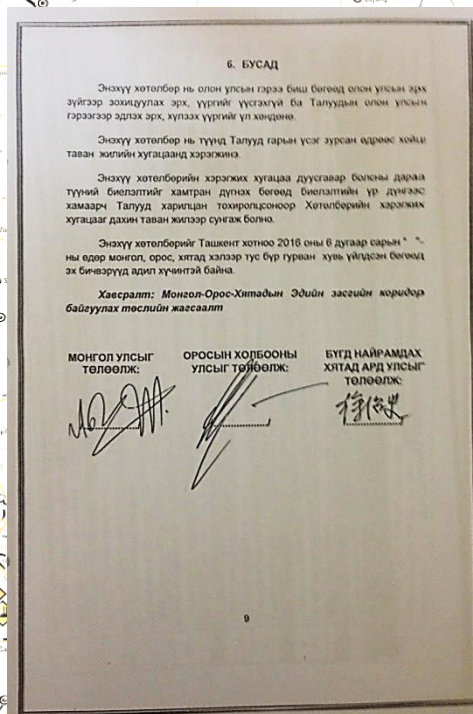 6. БУСАД
Энэхүү хөтөлбөр нь олон улсын гэрээ биш бөгөөд олон улсын эрх
зүйгээр зохицуулах эрх, үүргийг үүсгэхгүй ба Талуудын олон улсын
гэрээгээр эдлэх эрх, хүлээх үүргийг үл хөндөнө.
Энэхүү хөтөлбөр нь түүнд Талууд гарын үсэг зурсан өдрөөс хойш
таван жилийн хугацаанд хэрэгжинэ.
Энэхүү хөтөлбөрийн хэрэгжих хугацаа дуусгавар болсны дараа
түүний биелэлтийг хамтран дүгнэх бөгөөд биелэлтийн үр дүнгээс
хамаарч Талууд харилцан тохиролцсоноор Хөтөлбөрийн хэрэгжих
хугацааг дахин таван жилээр сунгаж болно.
Энэхүү хөтөлбөрийг Ташкент хотноо 2016 оны 6 дугаар сарын " "-
ны өдөр монгол, орос, хятад хэлээр тус бүр гурван хувь үйлдсэн бөгөөд
эх бичвэрүүд адил хүчинтэй байна.
Хавсралт: Монгол-Орос-Хятадын Эдийн засгийн коридор
байгуулах төслийн жагсаалт
МОНГОЛ УЛСЫГ
ТӨЛӨӨЛЖ:
ОРОСЫН ХОЛБООНЫ
УЛСЫГ ТӨЛӨӨЛЖ:
БҮГД НАЙРАМДАХ
ХЯТАД АРД УЛСЫГ
ТӨЛӨӨЛЖ:
9